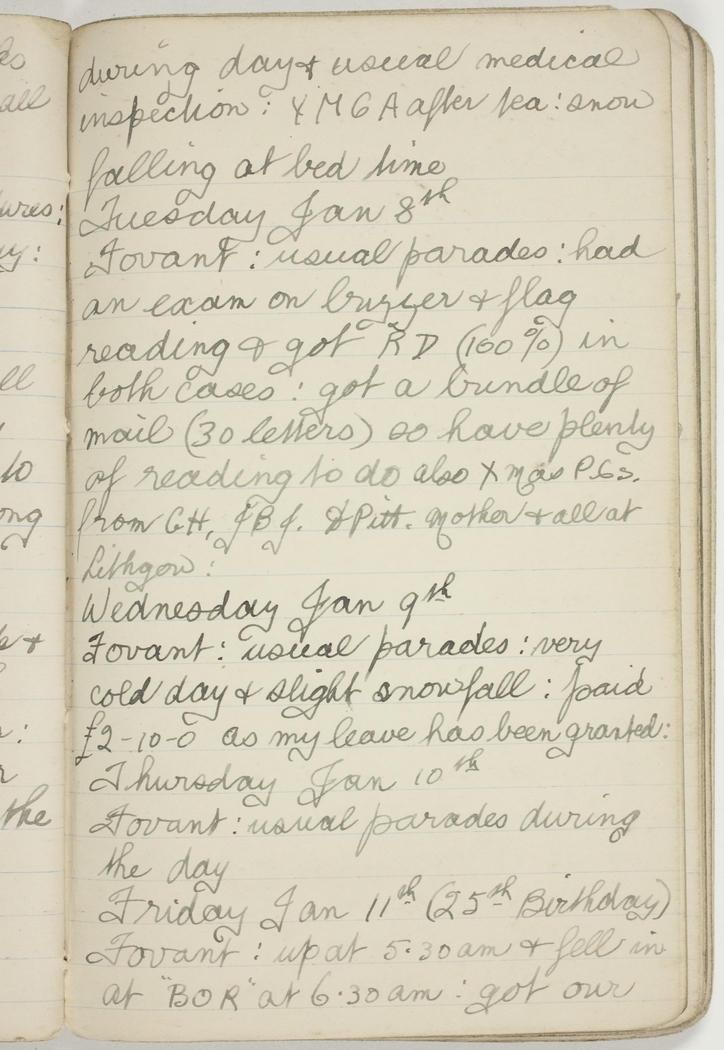 during day & usual medical
inspection : Y M C A after tea : snow
falling at bed time
Tuesday Jan 8th
Fovant : usual parades : had
an exam on buzzer & flag
reading & got R D (100%) in
both cases : got a bundle of
mail (30 letters) so have plenty
of reading to do also Xmas P.Cs.
from G H, J B J. D Pitt. Mother & all at
Lithgow :
Wednesday Jan 9th
Fovant : usual parades : very
cold day & slight snowfall : paid
£2-10-0 as my leave has been granted :
Thursday Jan 10th
Fovant : usual parades during
the day
Friday Jan 11th (25th Birthday)
Fovant : up at 5.30am & fell in
at "BOR" at 6.30am : got our
all
ures :
y :
ll
to
ong
&
:
r
the